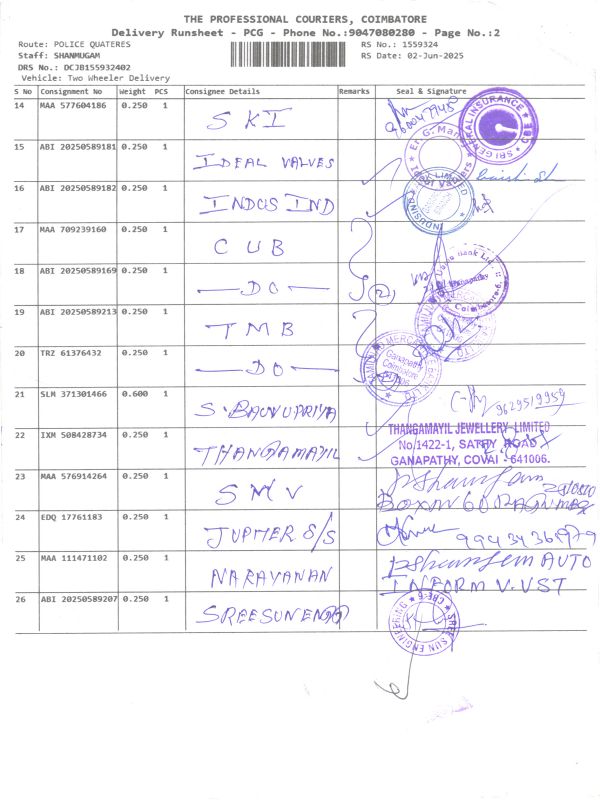 THE PROFESSIONAL COURIERS, COIMBATORE
Delivery Runsheet - PCG - Phone No.:9047080280 - Page No.:2
Route: POLICE QUATERES
RS No.: 1559324
Staff: SHANMUGAM
RS Date: 02-Jun-2025
DRS No.: DCJB155932402
Vehicle: Two Wheeler Delivery
S No Consignment No Weight PCS Consignee Details Remarks Seal & Signature
14 MAA 577604186 0.250 1 SKI
SRI GENERAL INSURANCE CBE
15 ABI 20250589181 0.250 1 IDEAL VALVES
16 ABI 20250589182 0.250 1 INDUS IND
17 MAA 709239160 0.250 1 CUB
18 ABI 20250589169 0.250 1 —DO— (2)
19 ABI 20250589213 0.250 1 TMB
20 TRZ 61376432 0.250 1 —DO—
Ganapathy
Coimbatore
21 SLM 371301466 0.600 1 S. BANUPRIYA 9629519959
22 IXM 508428734 0.250 1 THANGAMAYIL
THANGAMAYIL JEWELLERY LIMITED
No.1422-1, SATHY ROAD
GANAPATHY, COVAI - 641006.
23 MAA 576914264 0.250 1 SMV
24 EDQ 17761183 0.250 1 JUPITER S/S
25 MAA 111471102 0.250 1 NARAYANAN AUTO
INFORM V.VST
26 ABI 20250589207 0.250 1
SREE SUN ENGINEERING CBE-6